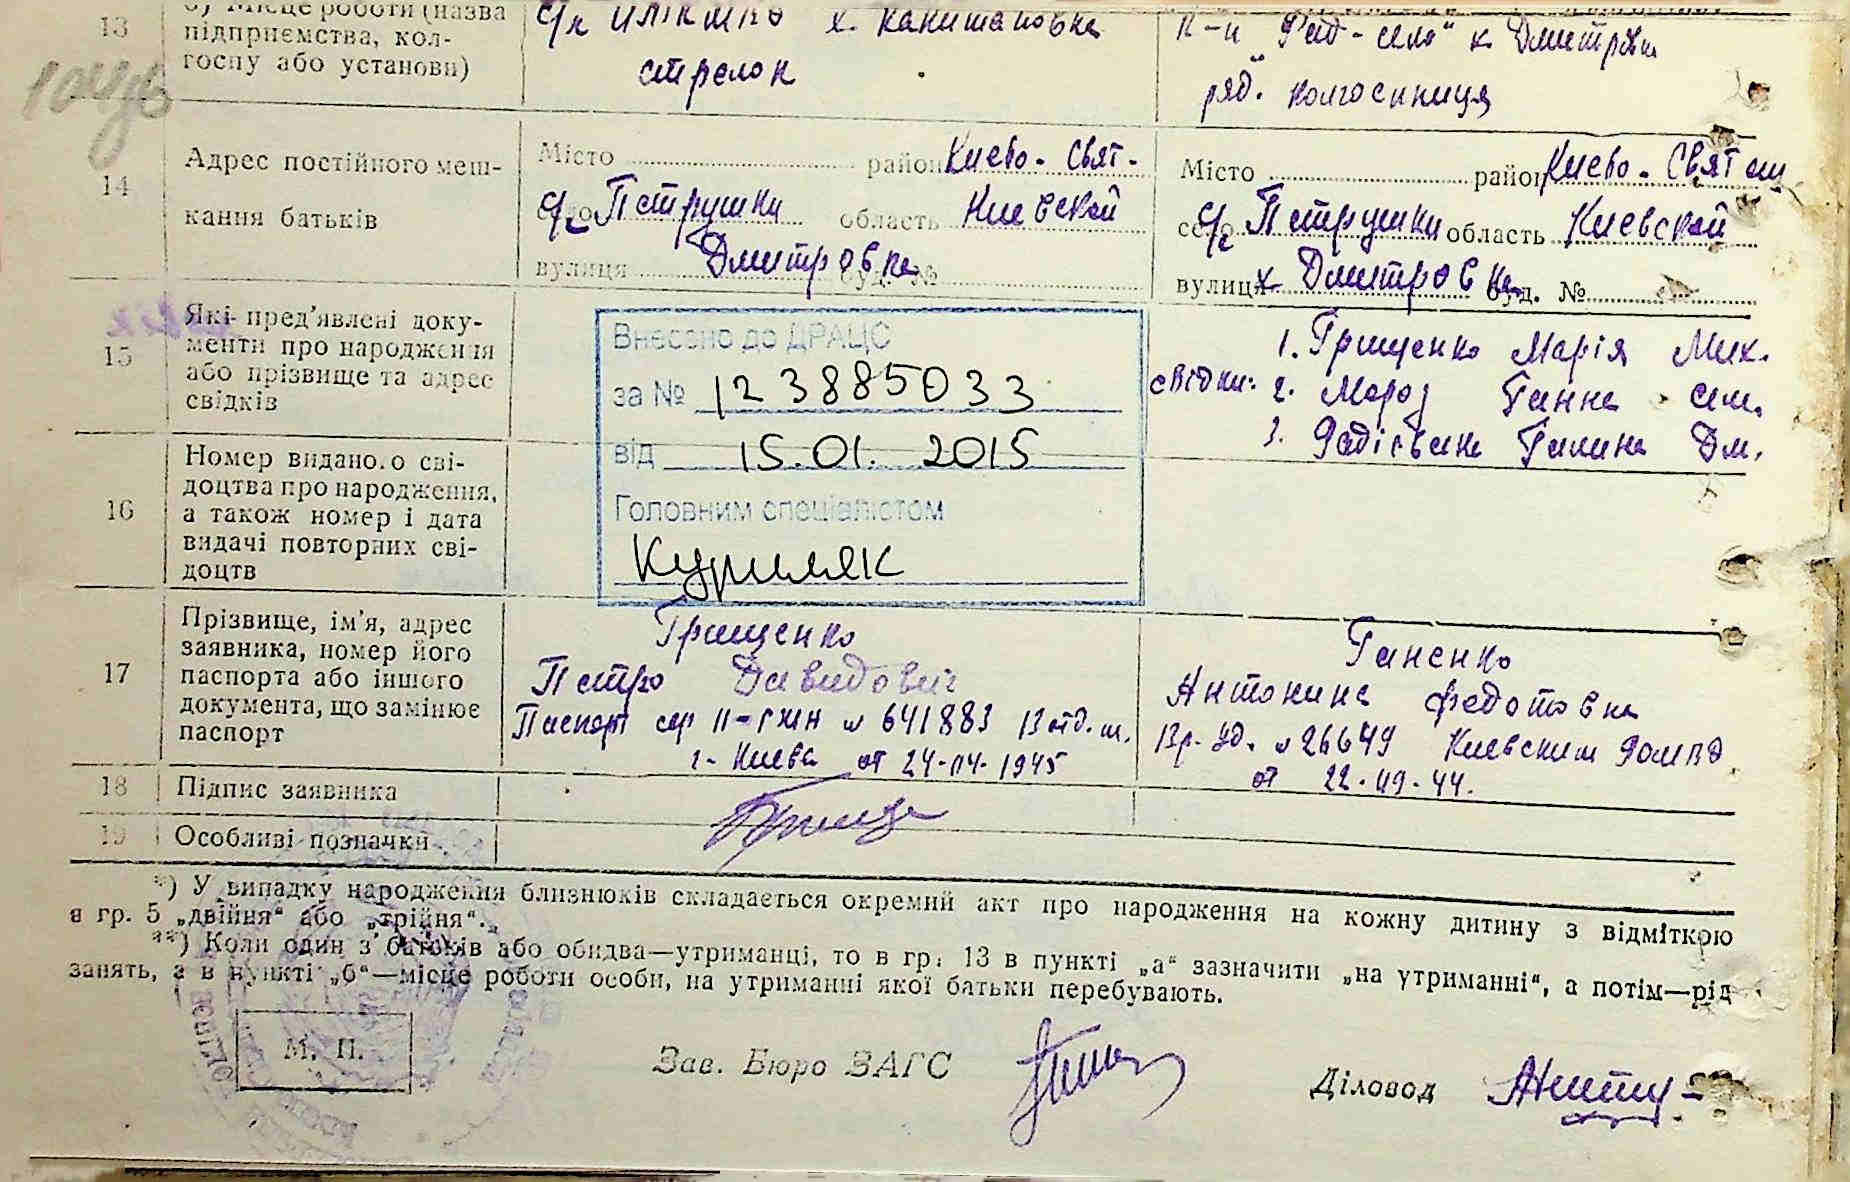 13 б) Місце роботи (назва підприємства, колгоспу або установи)
х. Капитановка
стрелок
"Рад-село" х. Дмитрівка
ряд. колгоспниця
14 Адрес постійного мешкання батьків
Місто район Киево-Свят.
с/с Петрушки область Киевской
вулиця Дмитровка буд. №
Місто район Киево-Святош
с/с Петрушки область Киевской
вулиця х. Дмитровка буд. №
15 Які пред'явлені документи про народження або прізвище та адрес свідків
Внесено до ДРАЦС
за № 123885033
від 15.01.2015
Головним спеціалістом
Куриляк
1. Грищенко Марія Мих.
свідки: 2. Мороз Ганна Сем.
3. Галина Дм.
16 Номер виданого свідоцтва про народження, а також номер і дата видачі повторних свідоцтв
17 Прізвище, ім'я, адрес заявника, номер його паспорта або іншого документа, що замінює паспорт
Грищенко
Петро Давидович
Паспорт сер II-ГЖН № 641883 13 отд. м.
г. Киева от 24-04-1945
Ганенко
Антонина Федотовна
Вр. уд. № 26649 Киевским
от 22-09-44.
18 Підпис заявника
19 Особливі позначки
*) У випадку народження близнюків складається окремий акт про народження на кожну дитину з відміткою
в гр. 5 „двійня“ або „трійня“.
**) Коли один з батьків або обидва—утриманці, то в гр. 13 в пункті „а“ зазначити „на утриманні“, а потім—рід
занять, а в пункті „б“—місце роботи особи, на утриманні якої батьки перебувають.
М. П.
Зав. Бюро ЗАГС
Діловод